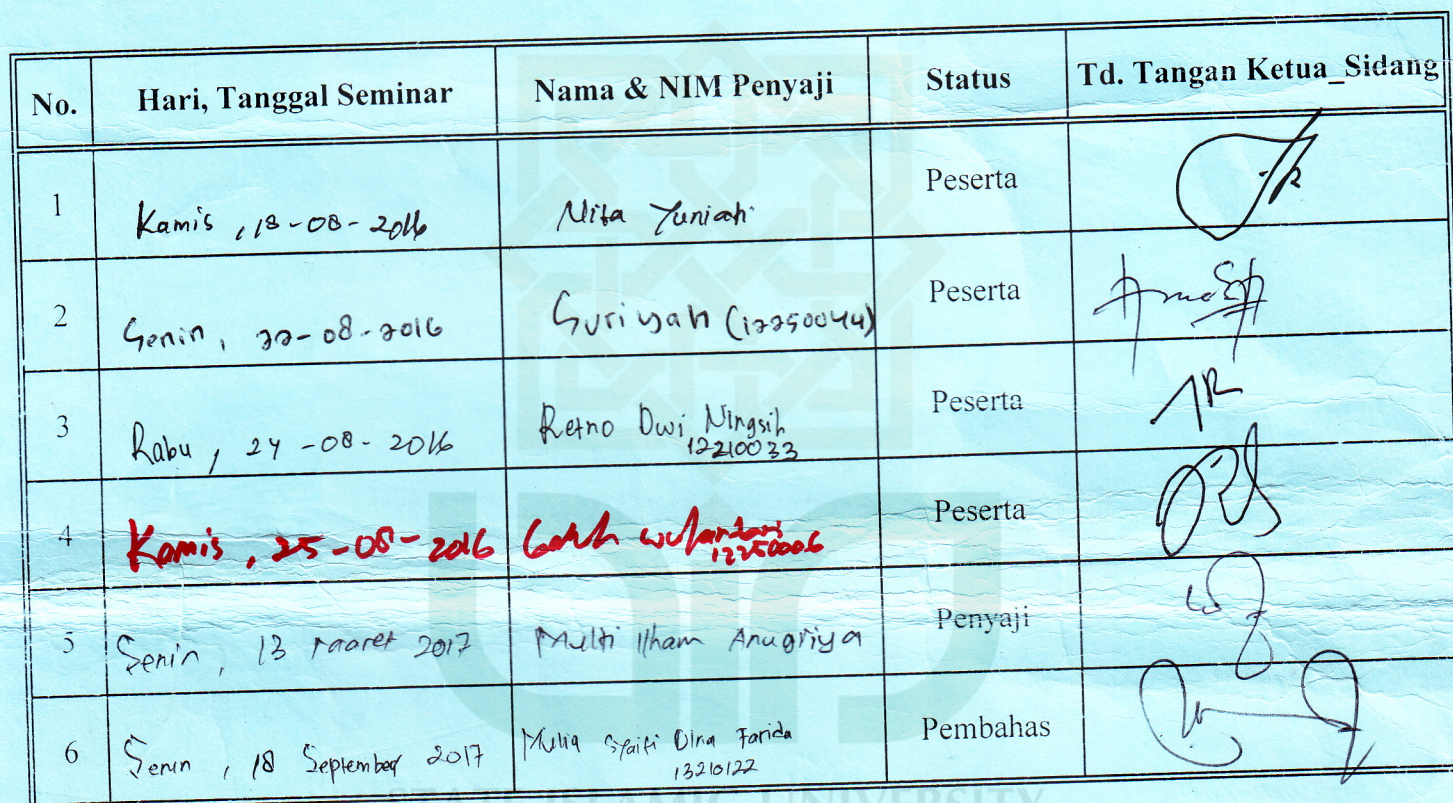 No. Hari, Tanggal Seminar Nama & NIM Penyaji Status Td. Tangan Ketua_Sidang
1 Kamis, 18-08-2016 Nita Yuniati Peserta
2 Senin, 22-08-2016 Suriyah (12250044) Peserta
3 Rabu, 24-08-2016 Retno Dwi Ningsih Peserta
12210033
4 Kamis, 25-08-2016 Galuh wulandari Peserta
12250006
5 Senin, 13 Maaret 2017 Multi Ilham Anugriya Penyaji
6 Senin, 18 September 2017 Mulia Syaifi Dina Farida Pembahas
13210122
STATE ISLAMIC UNIVERSITY